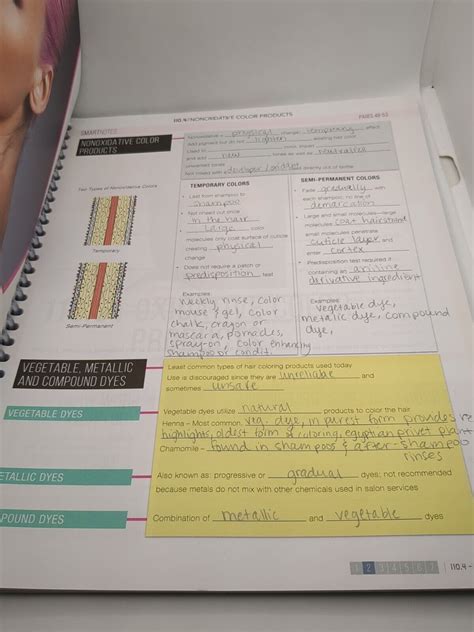 110.4//NONOXIDATIVE COLOR PRODUCTS PAGES 49-53
SMARTNOTES
NONOXIDATIVE COLOR
PRODUCTS
Nonoxidative = physical change; temporary effect
Add pigment but do not lighten existing hair color
Used to
and add new tones as well as neutralize
unwanted tones
Not mixed with developer/oxidant directly out of bottle
Two Types of Nonoxidative Colors
Temporary
Semi-Permanent
TEMPORARY COLORS
Last from shampoo to
shampoo
Not rinsed out once
in the hair
Large color
molecules only coat surface of cuticle
creating physical
change
Does not require a patch or
predisposition test
Examples:
Weekly rinse, color
mouse & gel, color
chalk, crayon or
mascara, pomades,
spray-on, color enhancing
shampoo or condit.
SEMI-PERMANENT COLORS
Fade gradually with
each shampoo; no line of
demarcation
Large and small molecules—large
molecules coat hairstrand
small molecules penetrate
cuticle layer and
enter cortex
Predisposition test required if
containing an aniline
derivative ingredient
Examples:
vegetable dye,
metalic dye, compound
dye,
VEGETABLE, METALLIC
AND COMPOUND DYES
Least common types of hair coloring products used today
Use is discouraged since they are unreliable and
sometimes unsafe
VEGETABLE DYES
Vegetable dyes utilize natural products to color the hair
Henna – Most common veg. dye, in purest form provides
highlights, oldest form of coloring, egyptian privet plant
Chamomile – found in shampoos & after-shampoo
rinses
ETALLIC DYES
Also known as: progressive or gradual dyes; not recommended
because metals do not mix with other chemicals used in salon services
POUND DYES
Combination of metallic and vegetable dyes
1 2 3 4 5 6 7 110.4 -